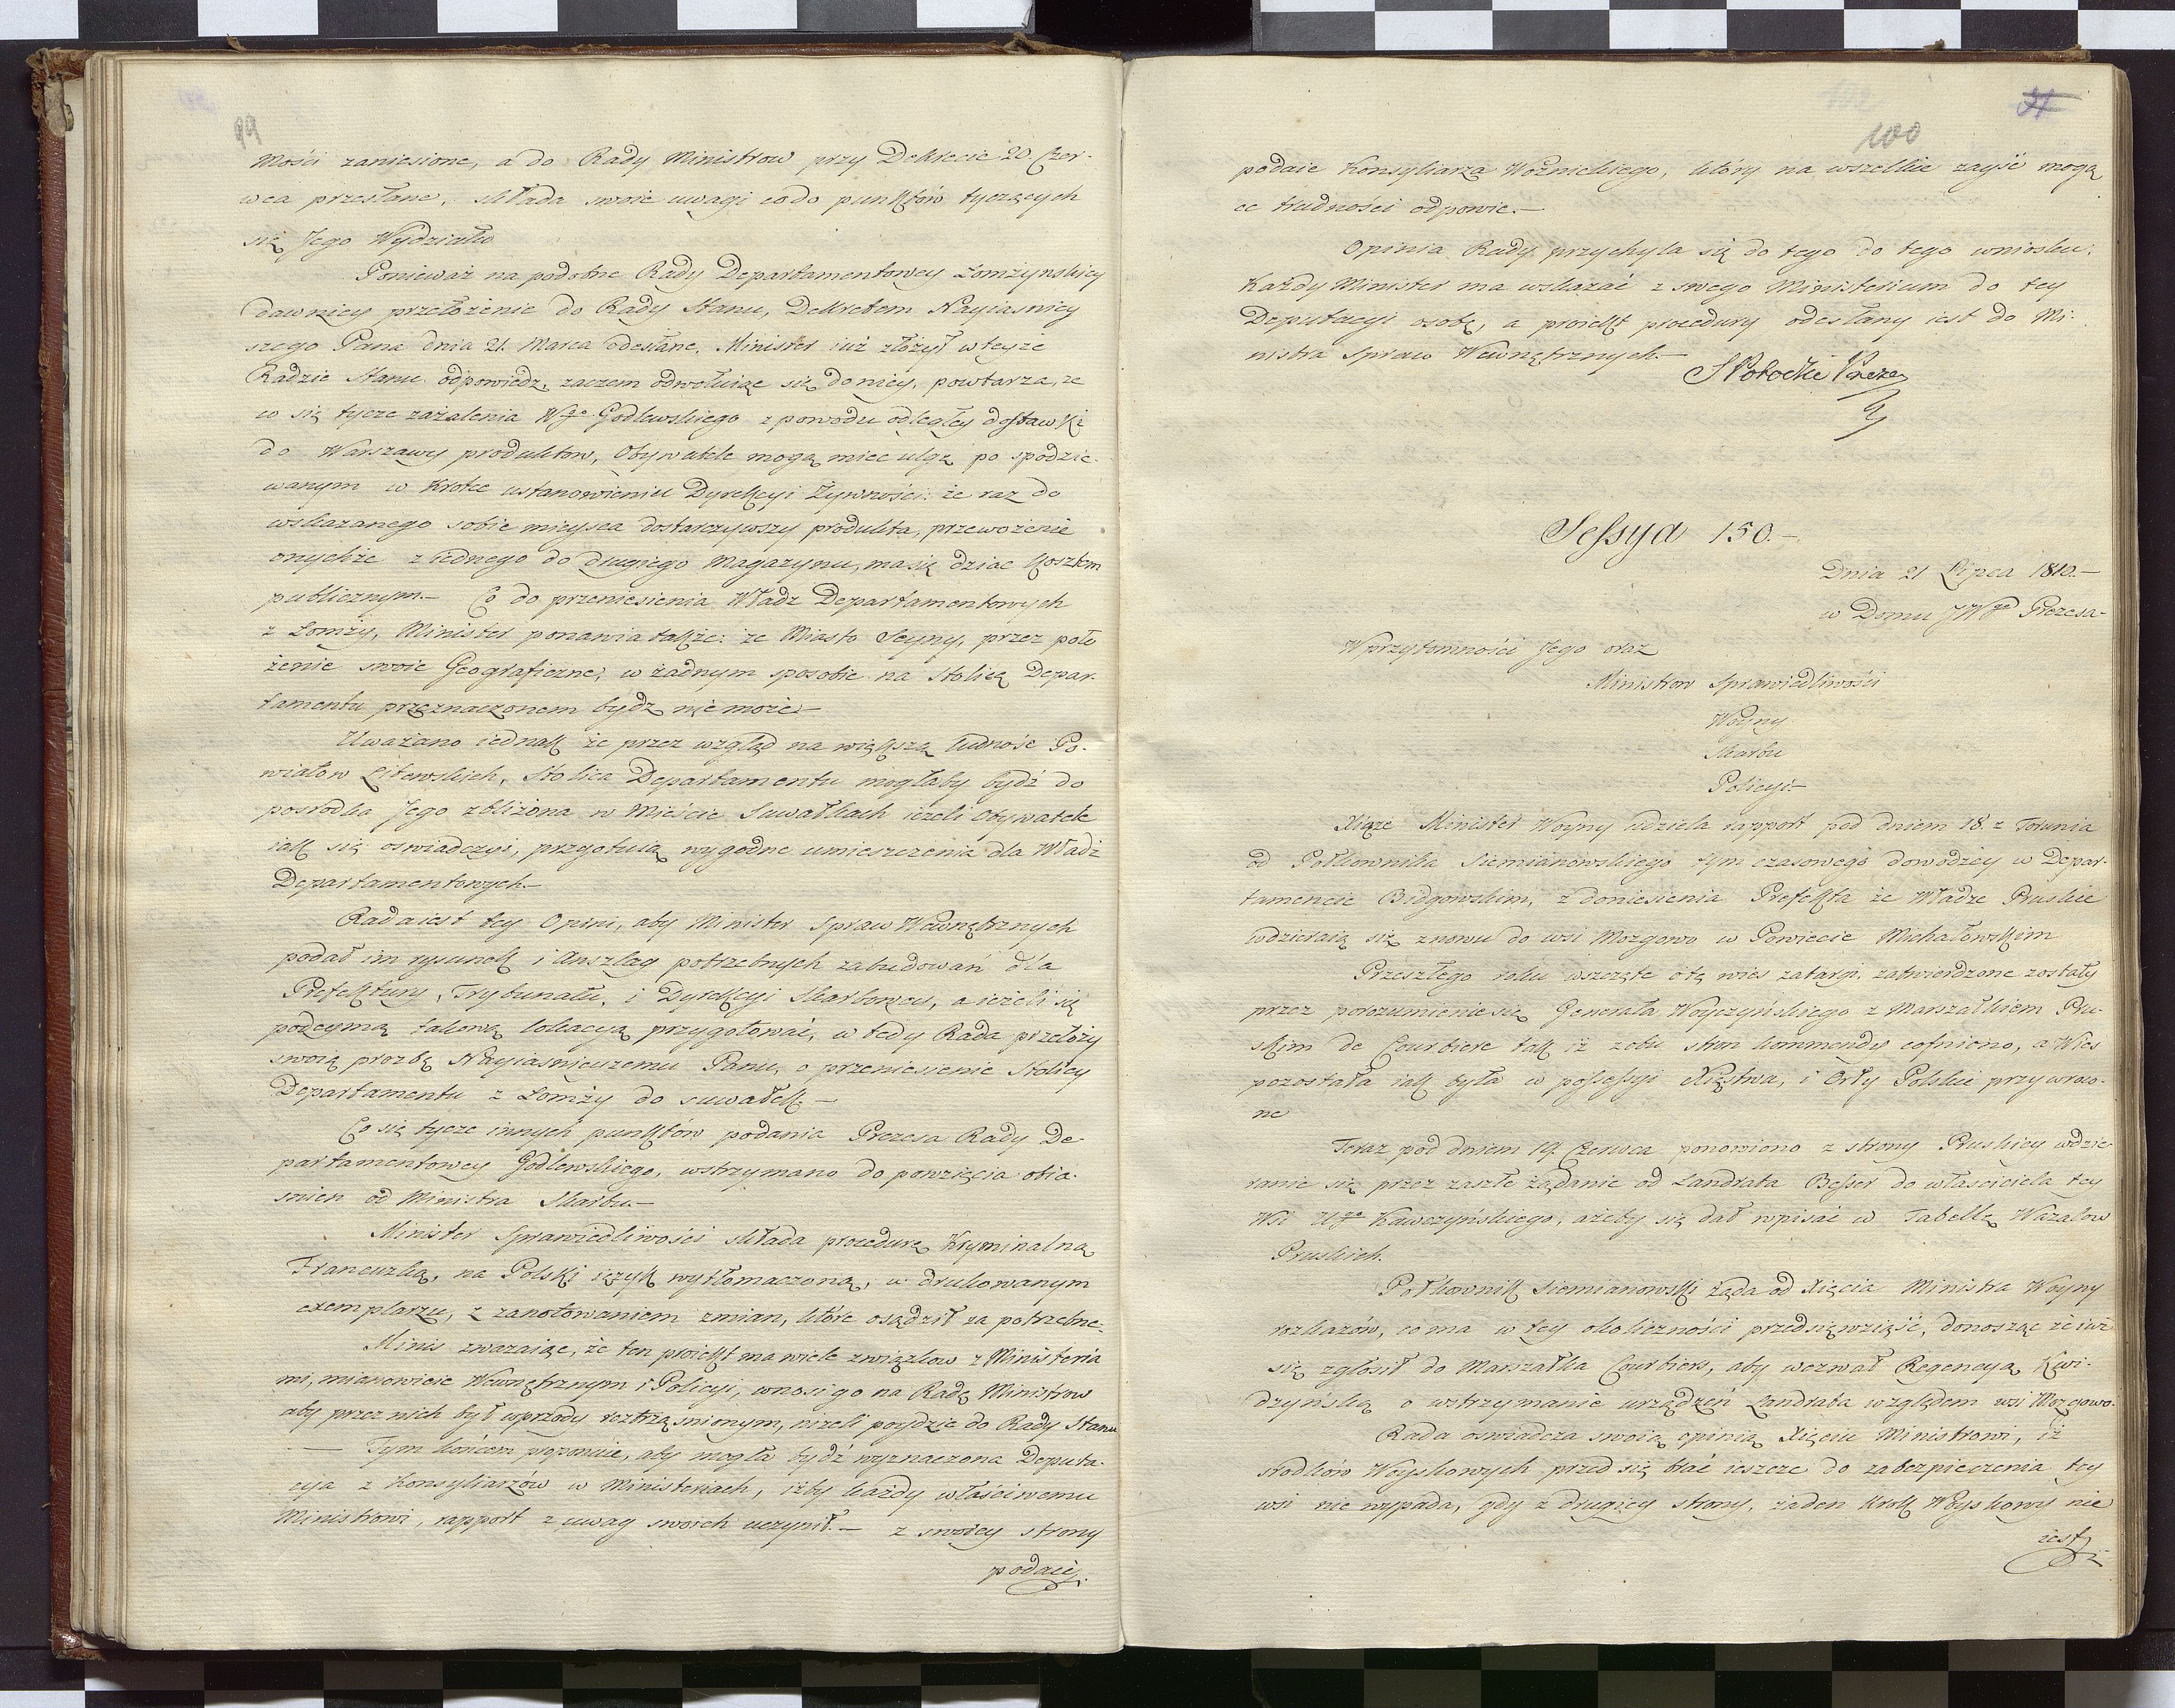 99
Mości zaniesione, a do Rady Ministrow przy Dekrecie 20. Czer-
wca przesłane, składa swoie uwagi co do punktów tyczących
się Jego Wydziału
Ponieważ na podobne Rady Departamentowey Łomżynskiey
dawniey przełożenie do Rady Stanu, Dekretem Nayiasniey
szego Pana dnia 21. Marca odesłane, Minister iuż złożył w teyże
Radzie Stanu odpowiedz, zaczem odwołuiąc się do niey, powtarza, że
co się tycze zażalenia Wgo Godlewskiego z powodu odległey dostawki
do Warszawy produktow, Obywatele mogą miec ulgę po spodzie-
wanym w krotce ustanowieniu Dyrekcyi Żywności: że raz do
wskazanego sobie mieysca dostarczywszy produkta, przewożenie
onychże z iednego do drugiego Magazynu, ma się dziac kosztem
publicznym.— Co do przeniesienia Władz Departamentowych
z Łomży, Minister ponawia także: że Miasto Seyny, przez poło
żenie swoie Geograficzne, w żadnym sposobie na Stolicę Depar-
tamentu przeznaczonem bydz nie może.—
Uważano iednak że przez wzgląd na większą ludność Po-
wiatow Litewskich, Stolica Departamentu mogłaby bydź do
posrodka Jego zbliżona w Mieście Suwałkach ieżeli Obywatele
iak się oswiadczyli, przygotuią wygodne umieszczenia dla Władz
Departamentowych.—
Rada iest tey Opini, aby Minister Spraw Wewnętrznych
podał im rysunek i Anszlag potrzebnych zabudowań dla
Prefektury, Trybunału, i Dyrekcyi Skarbowey, a ieżeli się
podeymą takową lokacyą przygotować, w tedy Rada przełoży
swoią prozbę Nayiasnieyszemu Panu, o przeniesienie Stolicy
Departamentu z Łomży do Suwałk.—
Co się tycze innych punktów podania Prezesa Rady De-
partamentowey Godlewskiego, wstrzymano do powzięcia obia-
snien od Ministra Skarbu.—
Minister Sprawiedliwości składa procedurę Kryminalną
Francuzką, na Polski ięzyk wytłomaczoną, w drukowanym
exemplarzu, z zanotowaniem zmian, które osądził za potrzebne.
Minis zważaiąc, że ten proiekt ma wiele związkow z Ministeria
mi, mianowicie Wewnętrznym i Policyi, wnosi go na Radę Ministrow
aby przez nich był wprzody roztrząsnionym, niżeli poydzie do Rady Stanu
— Tym końcem proponuie, aby mogła bydź wyznaczona Deputa-
cya z Konsyliarzów w Ministeriach, iżby każdy właściwemu
Ministrowi, rapport z uwag swoich uczynił.— z swoiey strony
podaie
100
podaie Konsyliarza Woźnickiego, który na wszelkie zayść mogą
ce trudności odpowie.—
Opinia Rady przychyla się do tego do tego wniosku:
Każdy Minister ma wskazać z swego Ministerium do tey
Deputacyi osobę, a proiekt procedury odesłany iest do Mi-
nistra Spraw Wewnętrznych.—
SPotocki Prezes
Sessya 150.—
Dnia 21 Lipca 1810.—
w Domu JWgo Prezesa-
W przytomności Jego oraz
Ministrow Sprawiedliwości
Woyny
Skarbu
Policyi—
Xiąże Minister Woyny udziela rapport pod dniem 18. z Torunia
od Połkownika Siemianowskiego tymczasowego dowodźcy w Depar-
tamencie Bidgowskim, z doniesienia Prefekta że Władze Pruskie
wdzieraią się znowu do wsi Mozgowo w Powiecie Michałowskim
Przeszłego roku wszczęte o tę wies zatargi, zatwierdzone zostały
przez porozumienie się Generała Woyczyńskiego z Marszałkiem Pru-
skim de Courbiere tak iż z obu stron kommendy cofniono, a Wies
pozostała iak była w possessyi Xięstwa, i Orły Polskie przywroco-
ne
Teraz pod dniem 19. Czerwca ponowiono z strony Pruskiey wdzie-
ranie się przez zaszłe żądanie od Landrata Besser do właściciela tey
Wsi Ugo Kawczyńskiego, ażeby się dał wpisać w Tabellę Wazalow
Pruskich.
Połkownik Siemianowski żąda od Xięcia Ministra Woyny
rozkazów, co ma w tey okoliczności przedsięwziąść, donosząc że iuż
się zgłosił do Marszałka Courbiere, aby wezwał Regencyą Kwi-
dzyńską o wstrzymanie urządzeń Landrata względem wsi Mozgowo.
Rada oswiadcza swoią opinią Xięciu Ministrowi, iż
srodków Woyskowych przed się brać ieszcze do zabezpieczenia tey
wsi nie wypada, gdy z drugiey strony, żaden krok Woyskowy nie
iest